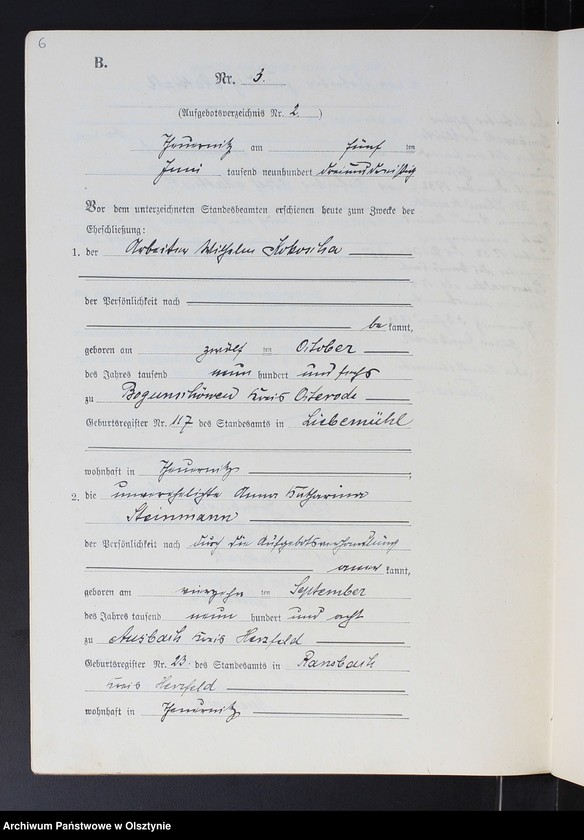 6
B.
Nr. 3.
(Aufgebotsverzeichnis Nr. 2.)
am fünf ten
Juni tausend neunhundert dreiunddreißig
Vor dem unterzeichneten Standesbeamten erschienen heute zum Zwecke der
Eheschließung:
1. der Arbeiter Wilhelm Kokoscha
der Persönlichkeit nach
be kannt,
geboren am zwölf ten October
des Jahres tausend neun hundert und sechs
zu Bogunschöwen Kreis Osterode
Geburtsregister Nr. 117 des Standesamts in Liebemühl
wohnhaft in
2. die unverehelichte Anna Katharina
Steinmann
der Persönlichkeit nach durch die Aufgebotsverhandlung
aner kannt,
geboren am vierzehn ten September
des Jahres tausend neun hundert und acht
zu Ausbach Kreis Hersfeld
Geburtsregister Nr. 23. des Standesamts in Ransbach
Kreis Hersfeld
wohnhaft in
Archiwum Państwowe w Olsztynie